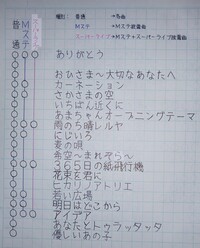 種別： 普通 →名曲
Mステ →Mステ披露曲
スーパーライブ →Mステ+スーパーライブ披露曲
普通
Mステ
ありがとう
おひさま〜大切なあなたへ
カーネーション
さかさまの空
いちばん近くに
あまちゃんオープニングテーマ
雨のち晴レルヤ
にじいろ
麦の唄
希空〜まれぞら〜
365日の紙飛行機
花束を君に
ヒカリノアトリエ
若い広場
明日はどこから
アイデア
あなたとトゥラッタッタ
優しいあの子